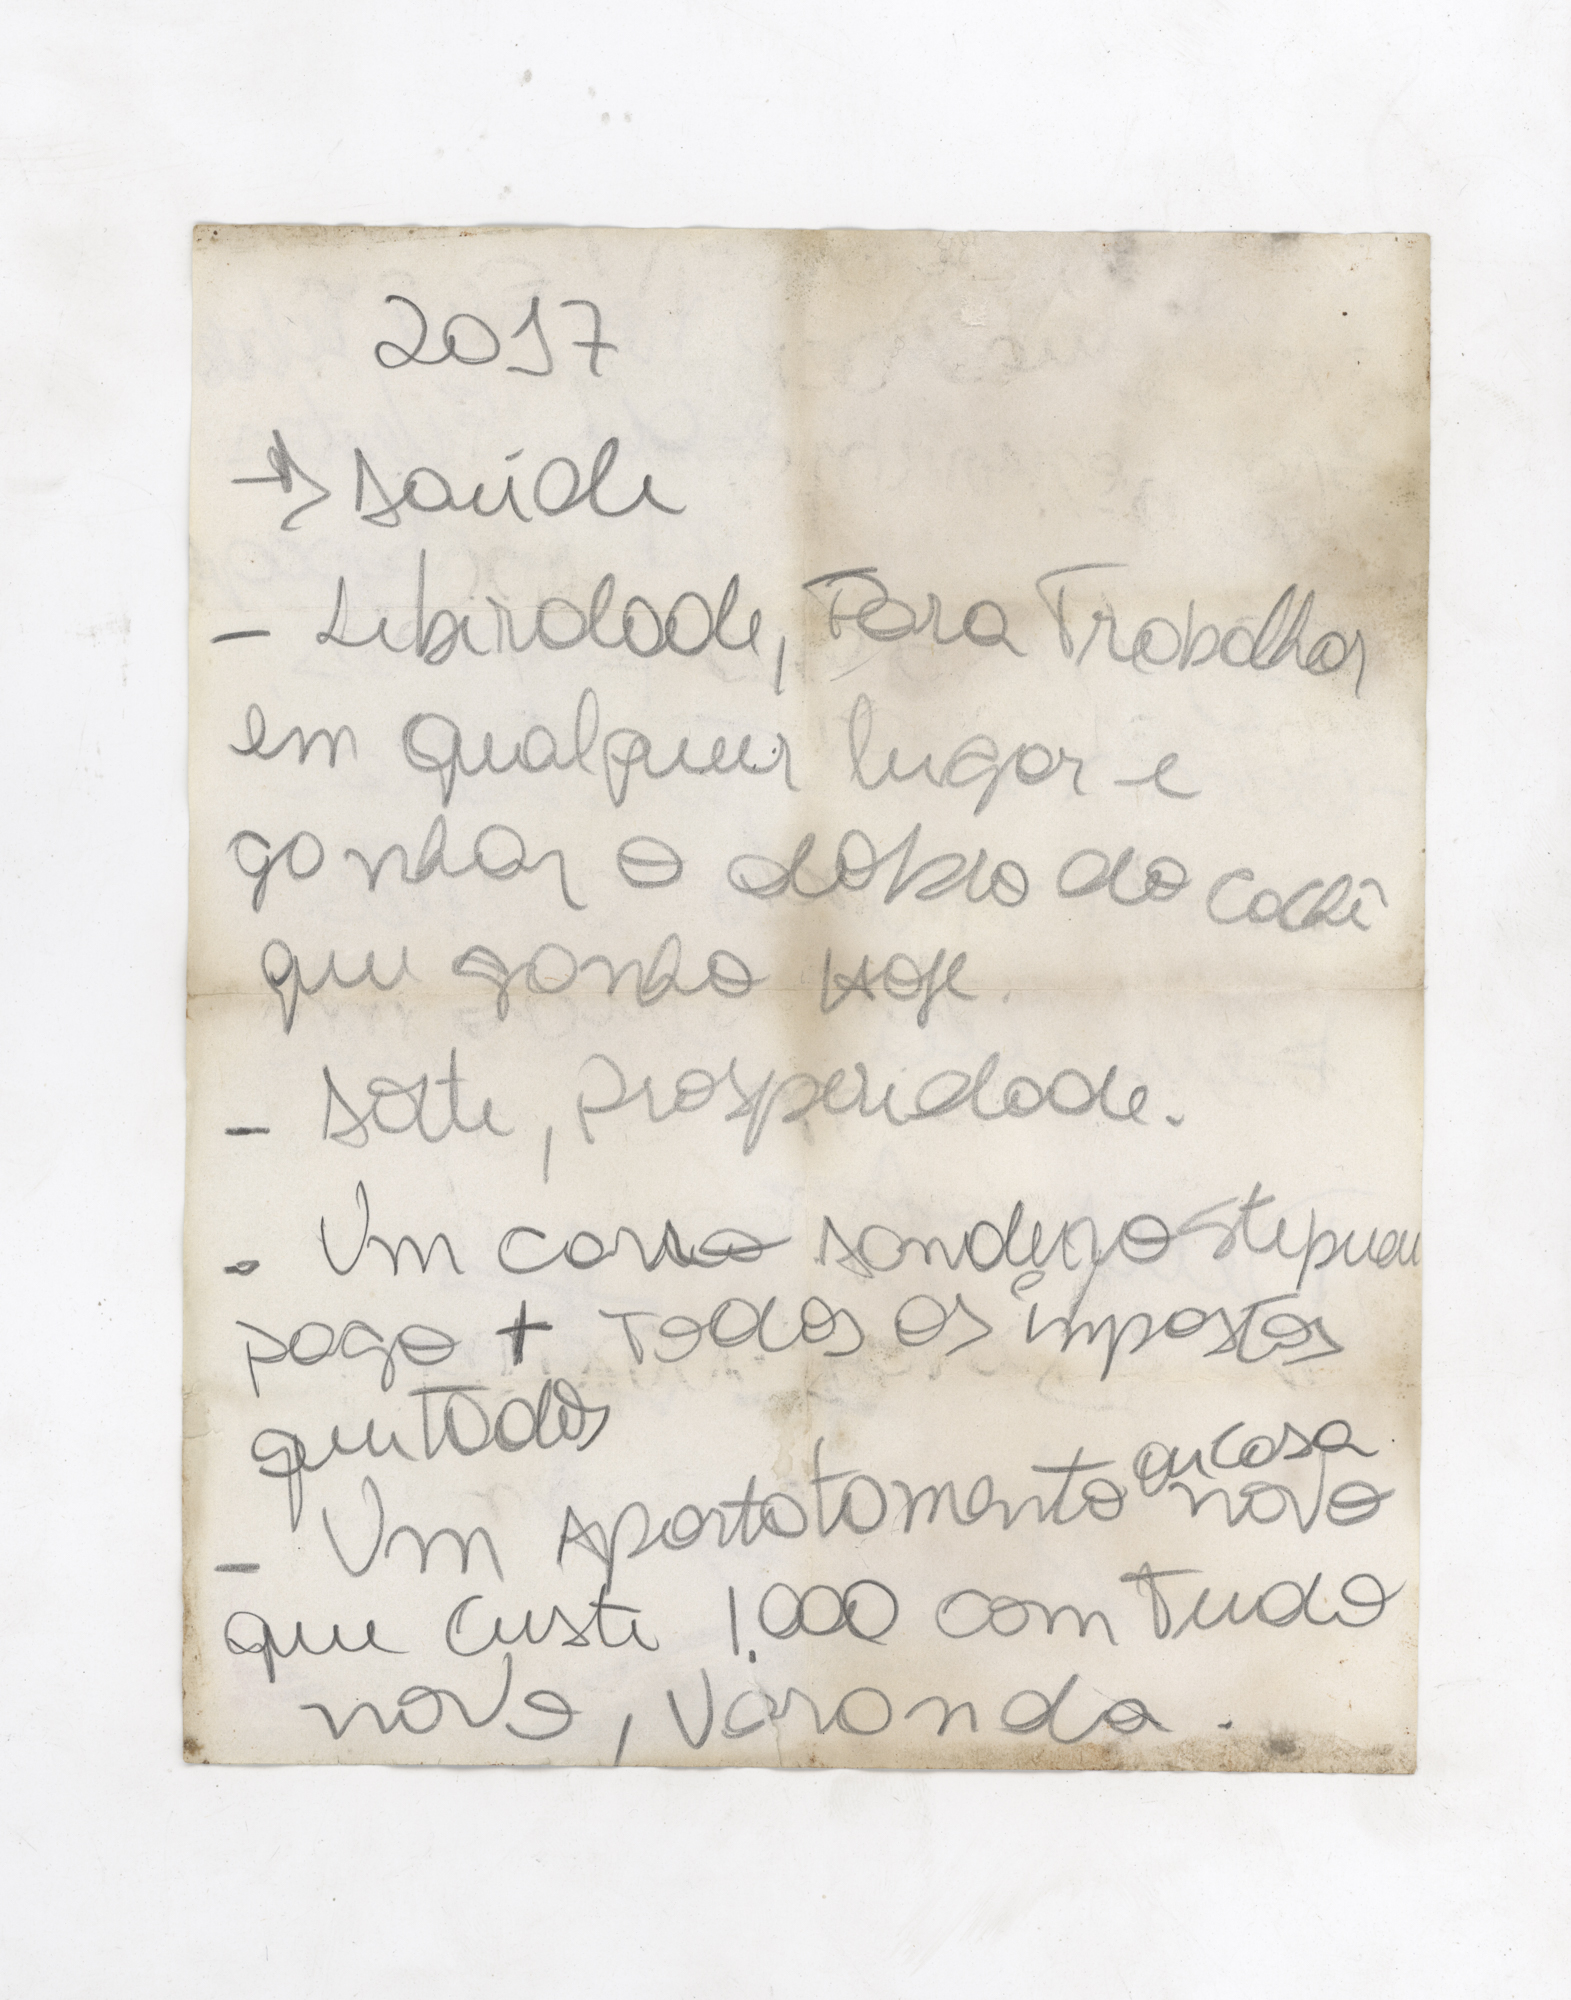 2017
→ saúde
- Liberdade, Para Trabalhar
em qualquer lugar e
ganhar o dobro do cachê
que ganho Hoje.
- sorte, prosperidade.
- Um carro sandero Stepway
pago + Todos os impostos
quitados
- Um Apartotamento ou casa novo
que custe 1.000 com Tudo
novo, Varanda.